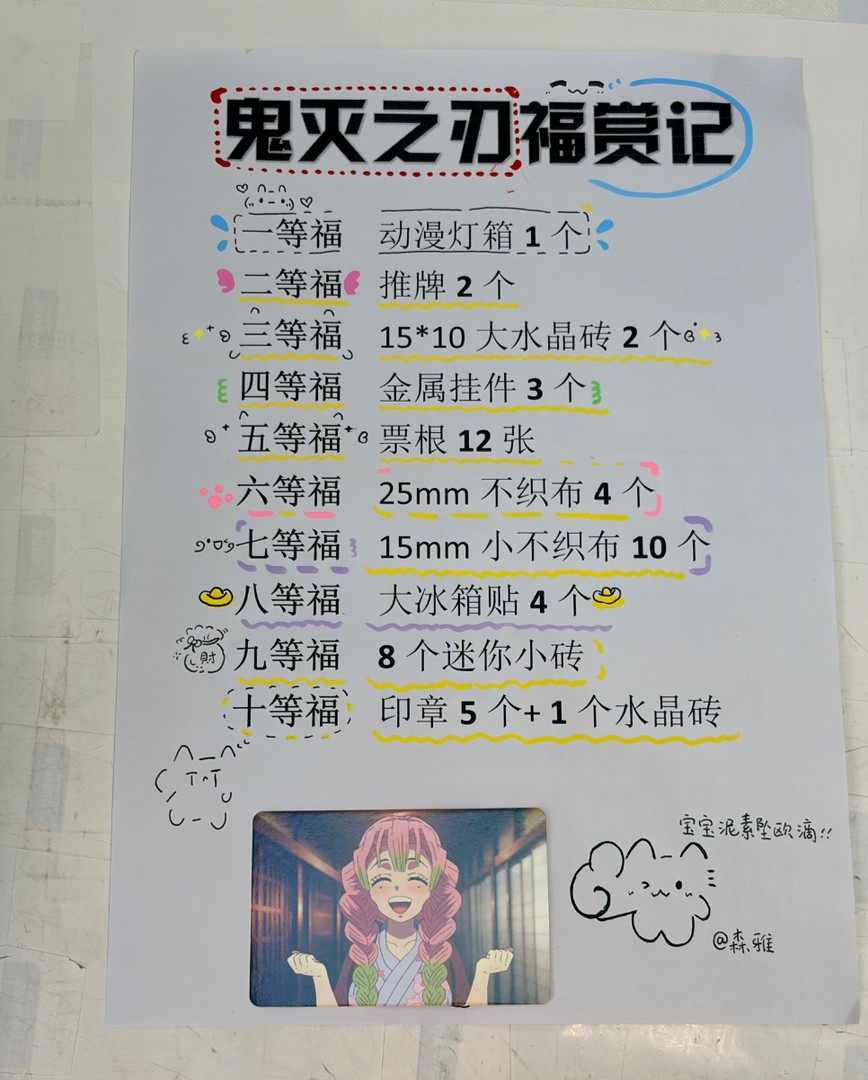 鬼灭之刃福赏记
一等福 动漫灯箱 1 个
二等福 推牌 2 个
三等福 15*10 大水晶砖 2 个
四等福 金属挂件 3 个
五等福 票根 12 张
六等福 25mm 不织布 4 个
七等福 15mm 小不织布 10 个
八等福 大冰箱贴 4 个
財 九等福 8 个迷你小砖
十等福 印章 5 个+ 1 个水晶砖
宝宝泥素坠欧滴!!
@森雅